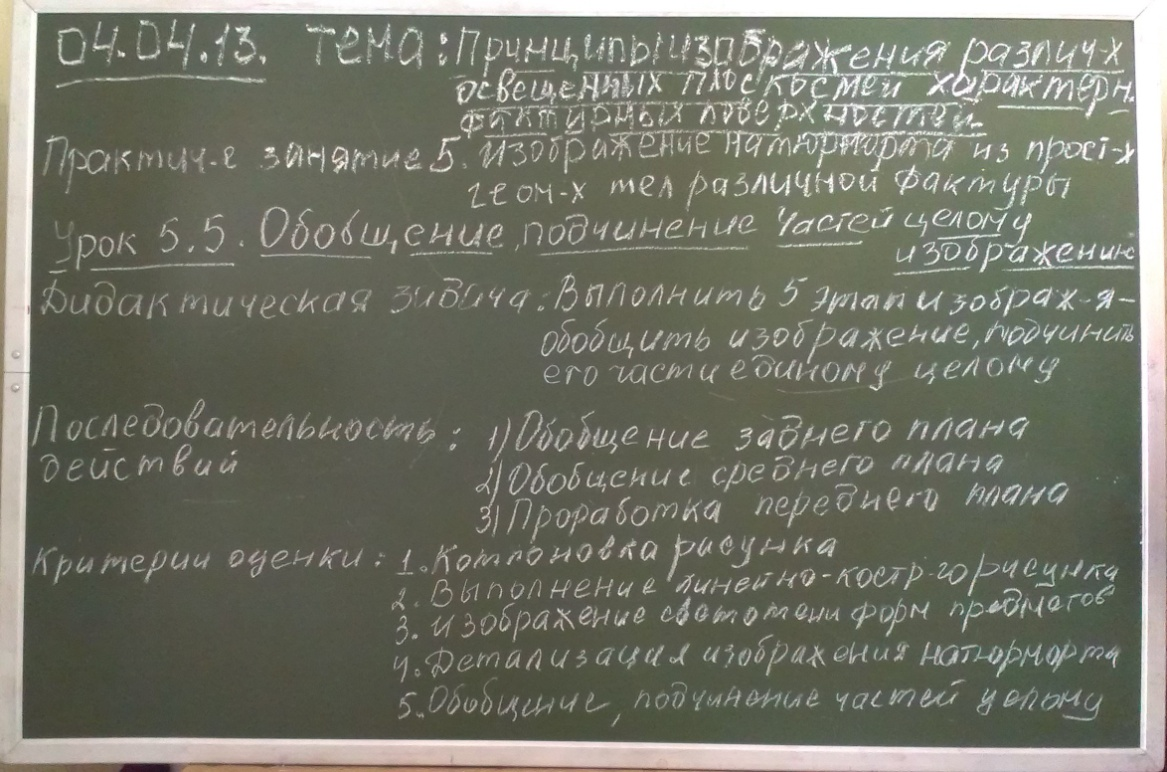 04.04.13. Тема: Принципы изображения различ-х
освещенных плоскостей характерн.
фактурных поверхностей.
Практич-е занятие 5. Изображение натюрморта из прост-х
геом-х тел различной фактуры
Урок 5.5. Обобщение, подчинение частей целому
изображению
Дидактическая задача: Выполнить 5 этап изображ-я-
обобщить изображение, подчинить
его части единому целому
Последовательность : 1) Обобщение заднего плана
действий
2) Обобщение среднего плана
3) Проработка переднего плана
Критерии оценки: 1. Компоновка рисунка
2. Выполнение линейно-костр-го рисунка
3. Изображение светотени форм предметов
4. Детализация изображения натюрморта
5. Обобщение, подчинение частей целому